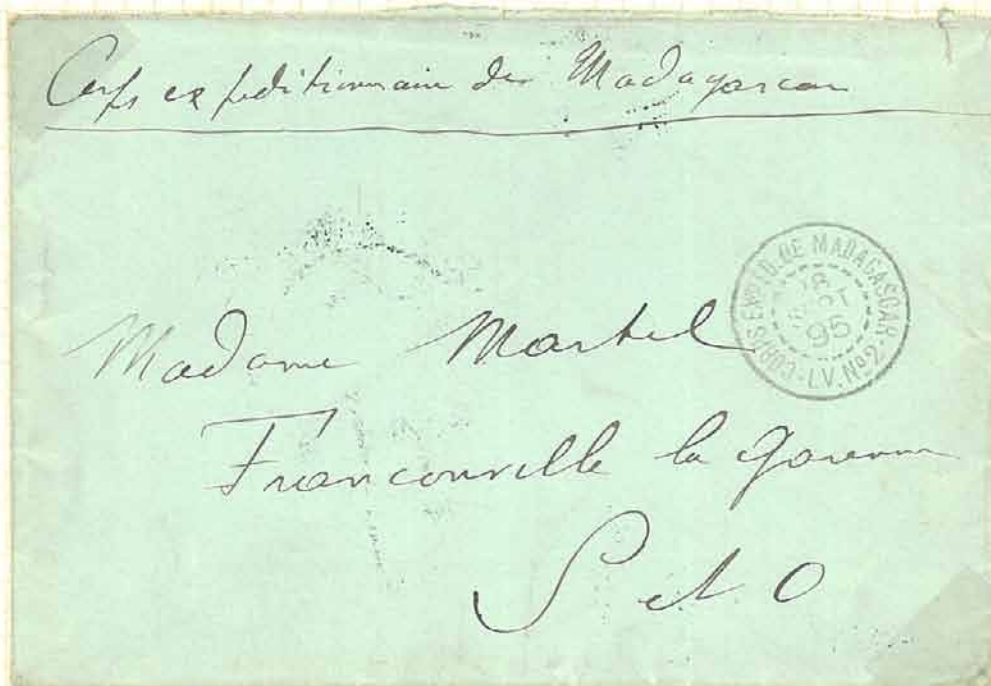 Corps expéditionnaire de Madagascar
CORPS EXPED. DE MADAGASCAR
95
L.V. No 2
Madame Martel
Franconville la Garenne
S et O